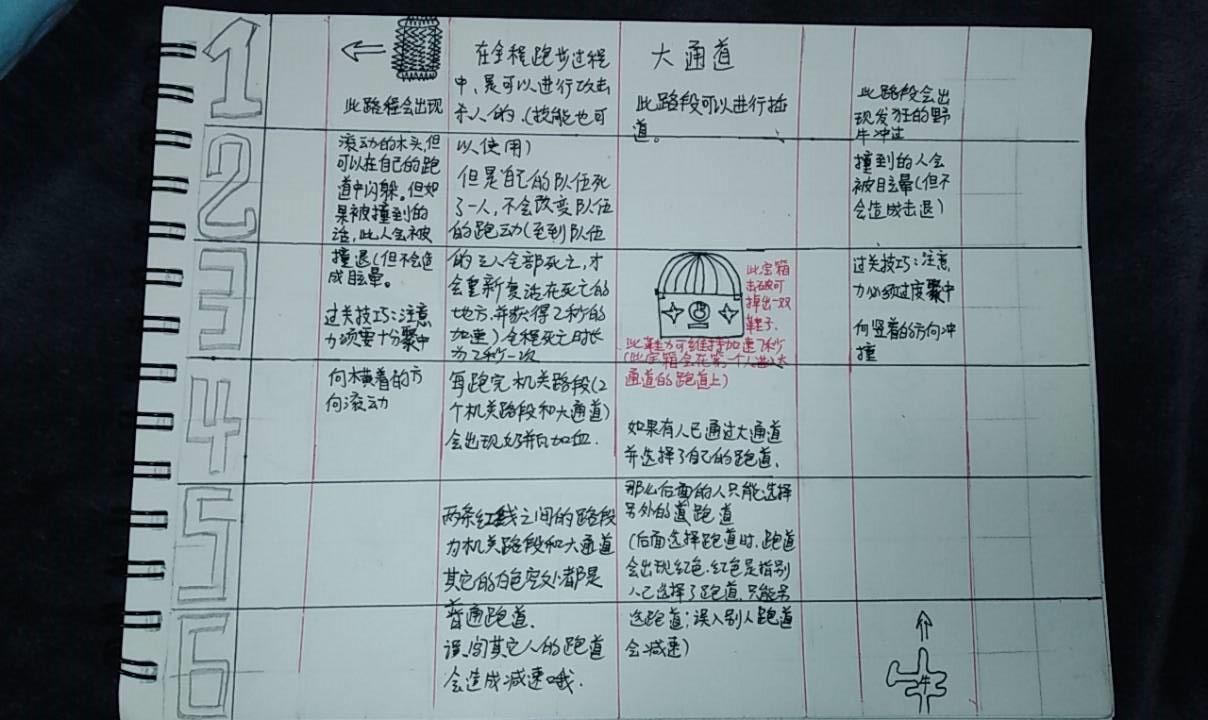 1
2
3
4
5
6
此路程会出现
滚动的木头,但
可以在自己的跑
道中闪躲。但如
果被撞到的
话,此人会被
撞退(但不会造
成目晕。
过关技巧:注意
力须要十分聚中
向横着的方
向滚动
在全程跑步过程
中,是可以进行攻击
杀人的.(技能也可
以使用)
但是自己的队伍死
了一人,不会改变队伍
的跑动(至到队伍
的三人全部死亡,才
会重新复活在死亡的
地方,并获得2秒的
加速)全程死亡时长
为2秒一次
每跑完机关路段(2
个机关路段和大通道)
会出现奶并白加血.
两条红线之间的路段
为机关路段和大通道
其它的白色空处都是
普通跑道.
误闯其它人的跑道
会造成减速哦.
大通道
此路段可以进行抢
道。
此宝箱
击破可
掉出一双
鞋子.
此鞋子可维持加速7秒
(此宝箱会在第一个人进入大
通道的跑道上)
如果有人已通过大通道
并选择了自己的跑道,
那么后面的人只能选择
另外的道跑道
(后面选择跑道时,跑道
会出现红色.红色是指别
人已选择了跑道,只能另
选跑道;误入别人跑道
会减速)
此路段会出
现发狂的野
牛冲过
撞到的人会
被目晕(但不
会造成击退)
过关技巧:注意
力必须过度聚中
向竖着的方向冲
撞
牛